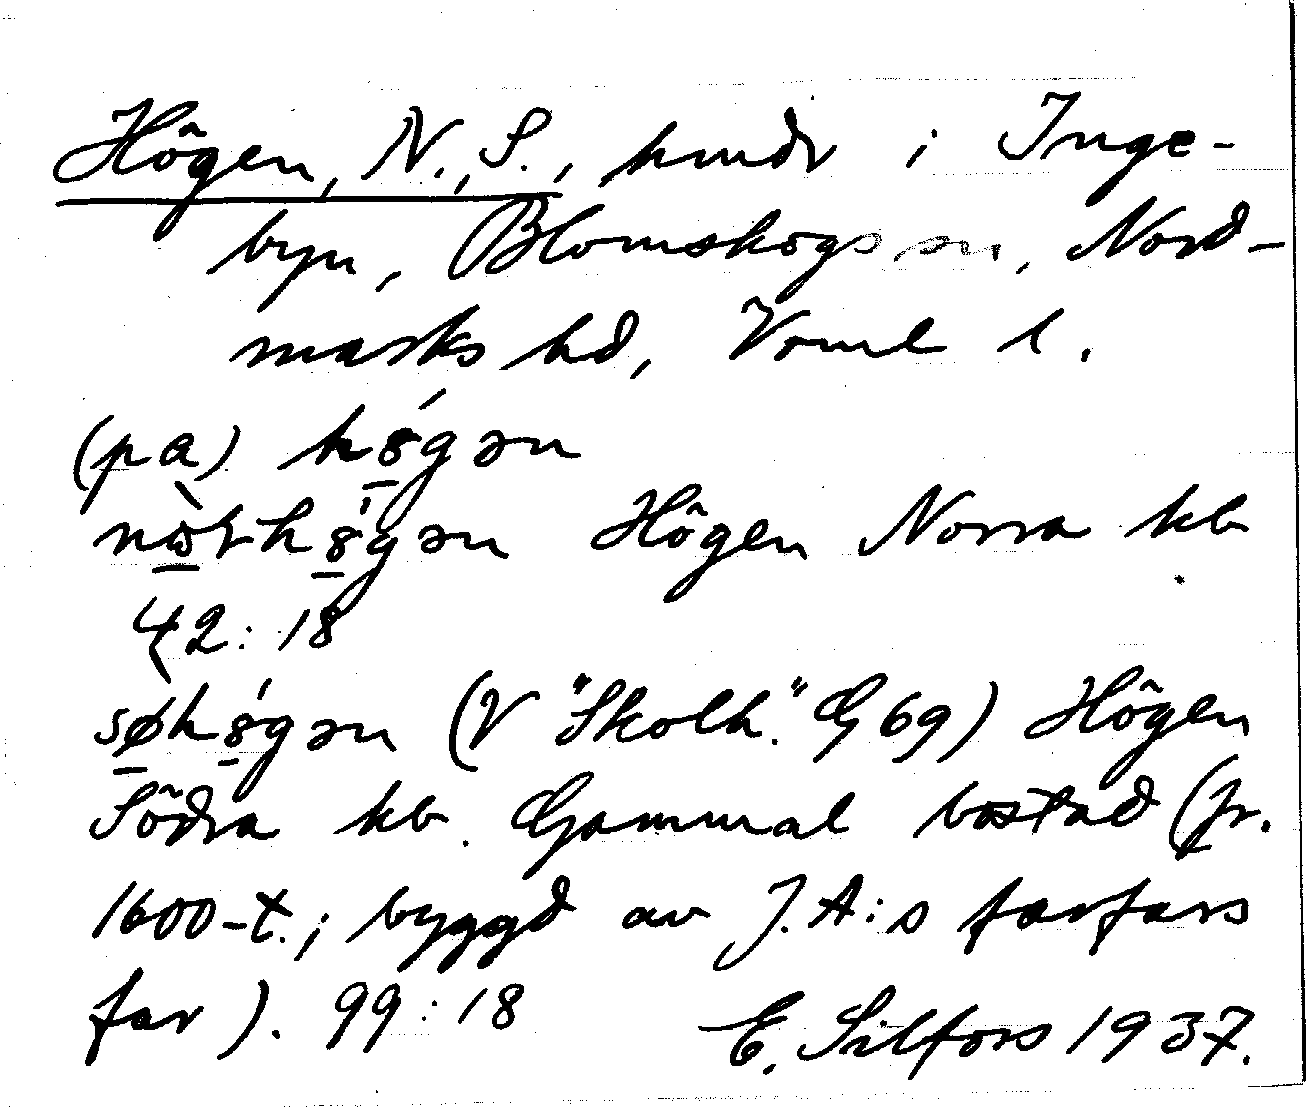 Högen, N., S., hmdr i Inge-
byn, Blomskogs sn, Nord-
marks hd, Verml l.
(på)
Högen Norra kb
42:18
(V "Skolh." G 69) Högen
Södra kb. Gammal bostad (fr.
1600-t.; byggd av J.A:s farfars
far). 99:18 E. Silfors 1937.